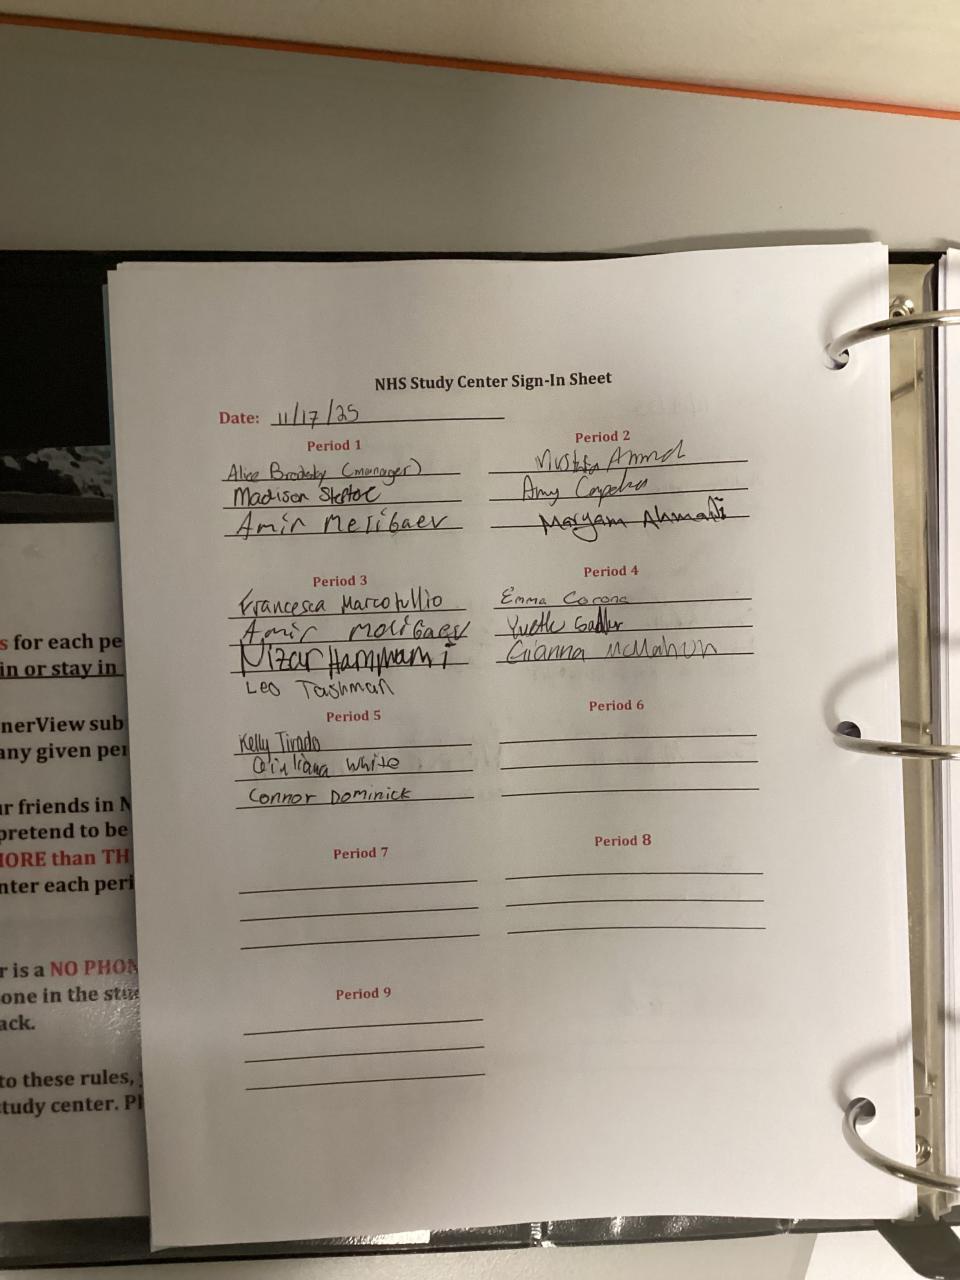 NHS Study Center Sign-In Sheet
Date: 11/17/25
Period 1
Alice (manager)
Madison
Amir Melibaev
Period 2
Mustafa Ahmed
Amy
Maryam Ahmadi
Period 3
Francesca Marcotullio
Amir Melibaev
Nizar Hammami
Leo Tashman
Period 4
Emma Corona
Gianna McMahon
Period 5
Kelly Tirado
White
Connor Dominick
Period 6
Period 7
Period 8
Period 9
s for each pe
in or stay in
nerView sub
any given per
ur friends in N
pretend to be
MORE than TH
nter each peri
r is a NO PHON
one in the stu
ack.
to these rules,
study center. Pl